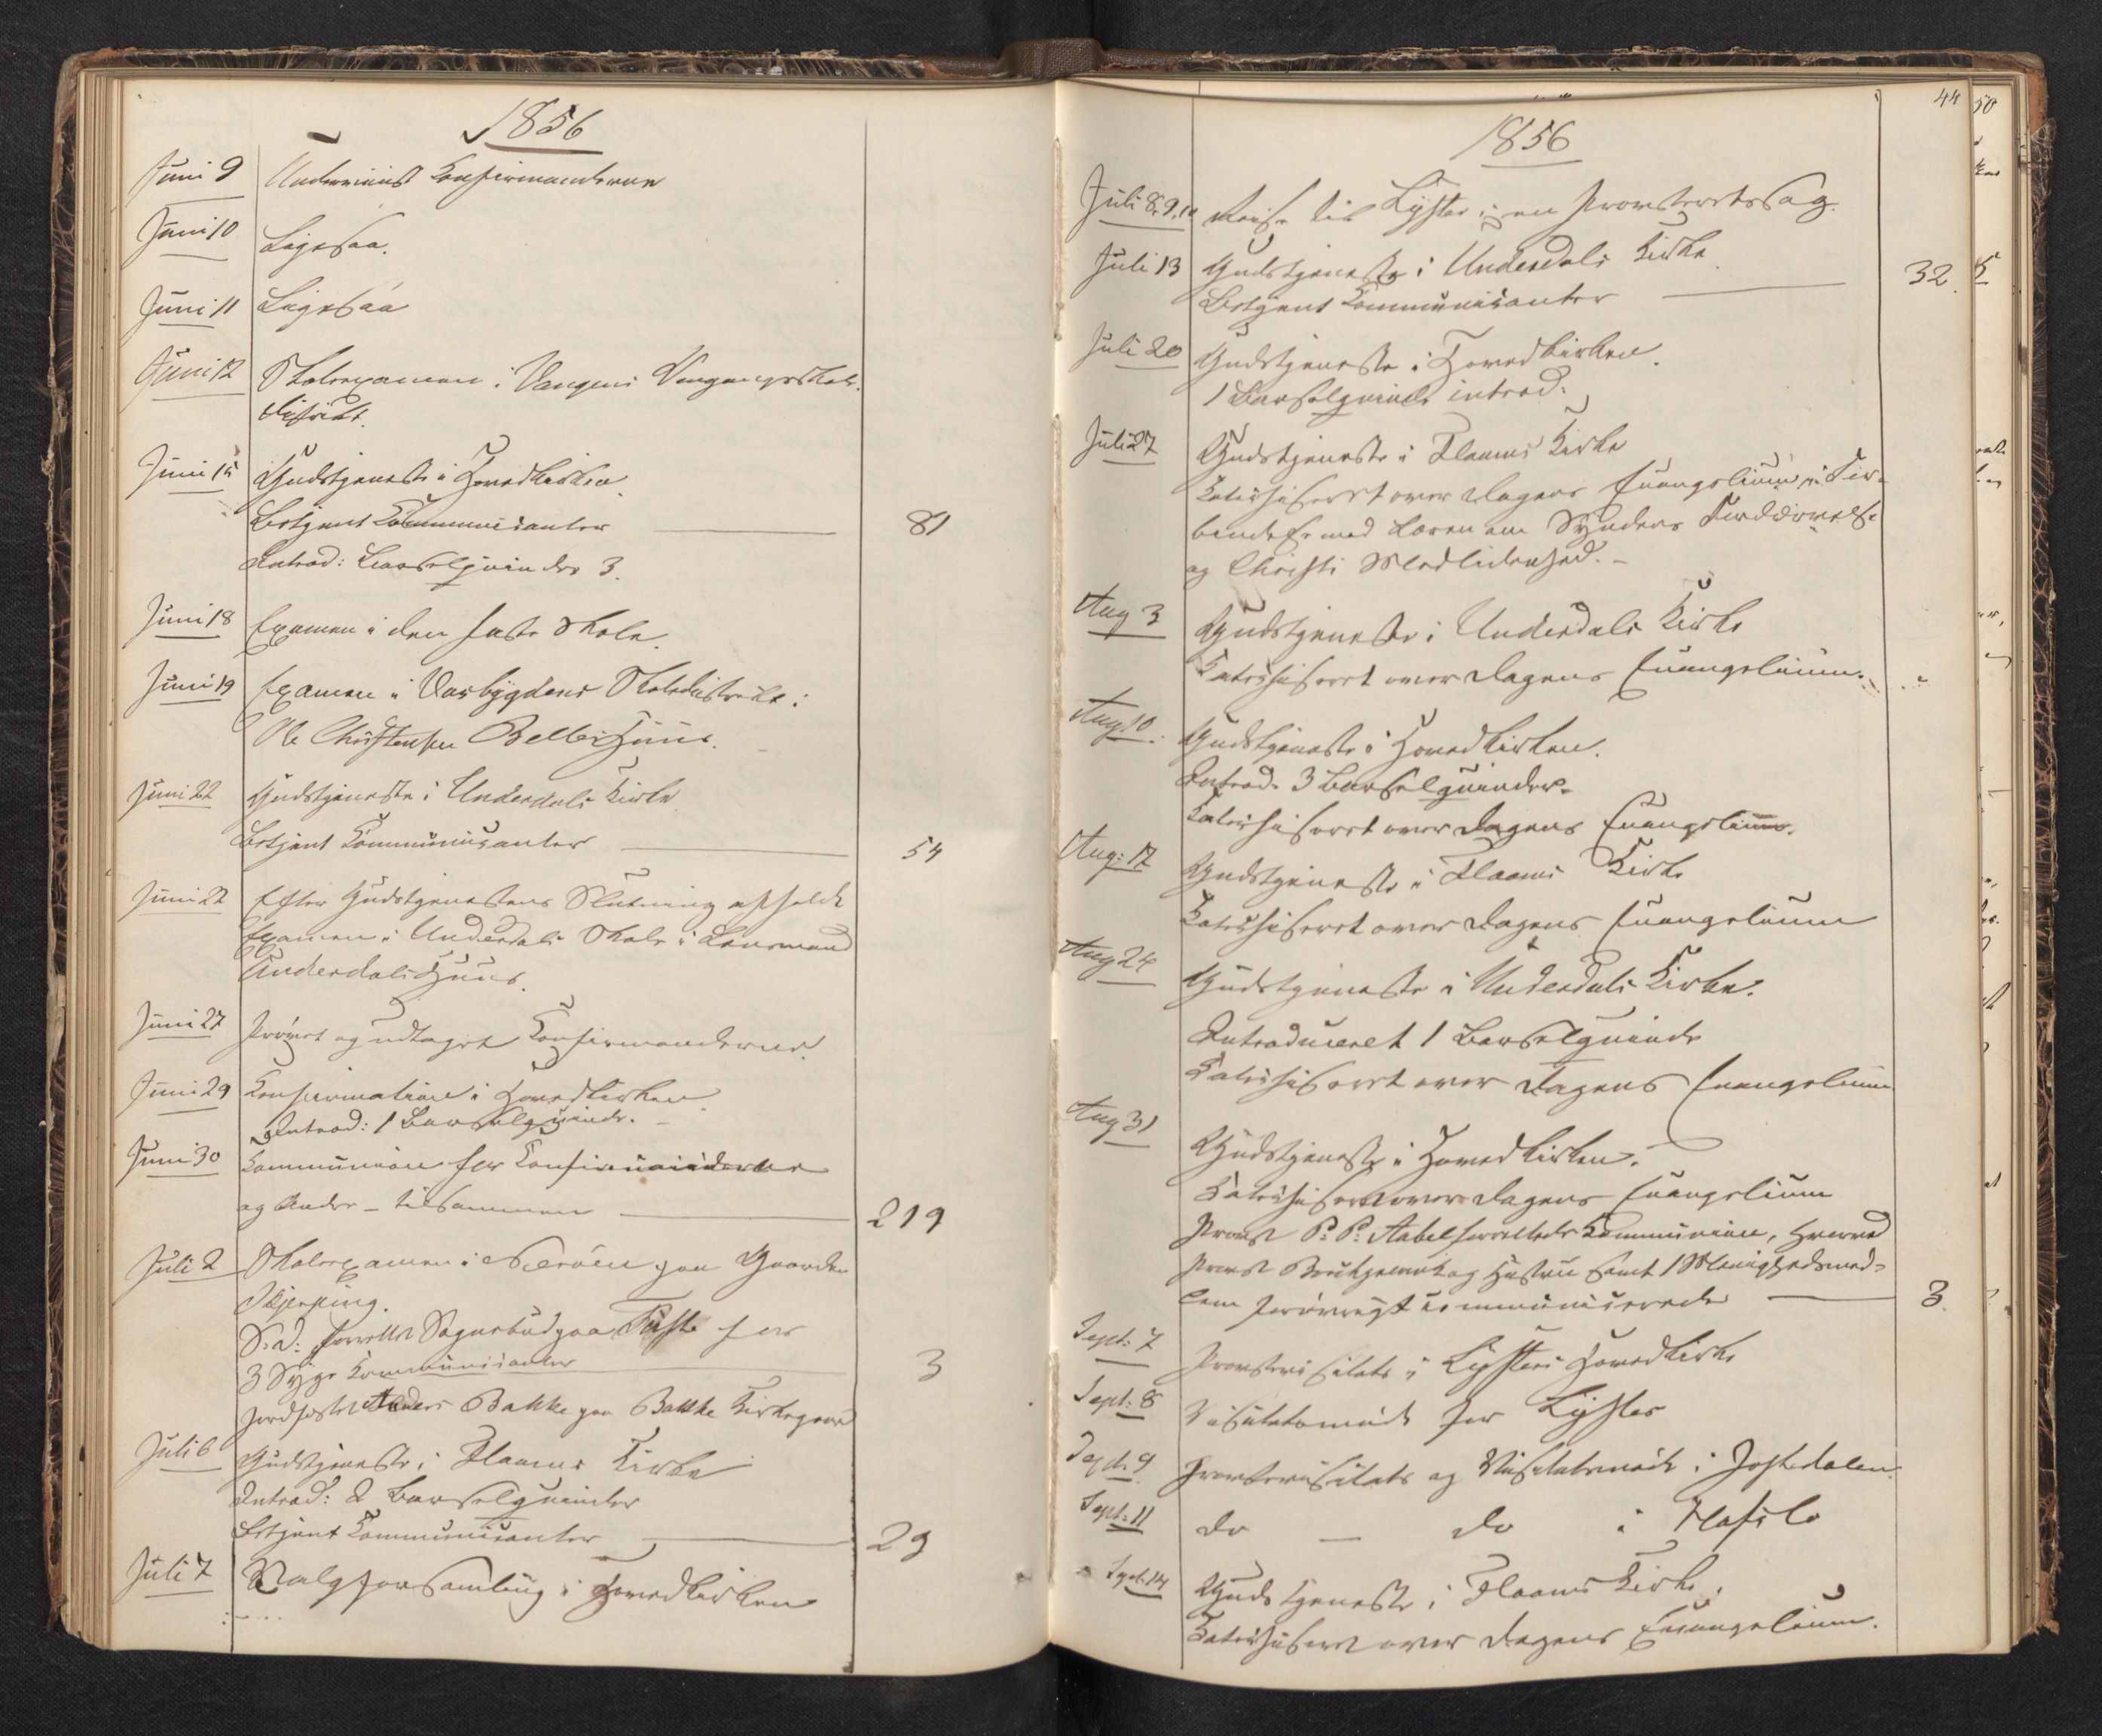 1856
Juni 9 Underviist Confirmanderne
Juni 10 Ligesaa.
Juni 11 Ligesaa
Juni 12 Skoleexamen i Vangens Omgangsskole-
distrikt.
Juni 15 Gudstjeneste i Hovedkirken
Betjent Communicanter 81
Introd: Barselqvinder 3.
Juni 18 Examen i den faste Skole.
Juni 19 Examen i Vasbygdens Skoledistrikt i
Ole Christensen Belles Huus.
Juni 22 Gudstjeneste i Underdals Kirke
Betjent Communicanter 54
Juni 22 Efter Gudstjenestens Slutning afholdt
Examen i Underdals Skole i Lensmand
Underdals Huus.
Juni 27 Prøvet og udtaget Confirmanderne.
Juni 29 Confirmation i Hovedkirken
Introd: 1 Barselqvinde.
Juni 30 Communion for Confirmanderne
og Andre – tilsammen 219
Juli 2 Skoleexamen i Nerøen paa Gaarden
Skjerping.
S. D. forrettet Sognebud paa for
3 Syge Communicanter 3
Jordfæstet Anders Bakke paa Bakke Kirkegaard
Juli 6 Gudstjeneste i Flaams Kirke
Introd: 2 Barselqvinder
Betjent Communicanter 29
Juli 7 Valgforsamling i Hovedkirken
44
1856
Juli 8. 9. 10 Reise til Lyster i en Provsteretssag.
Juli 13 Gudstjeneste i Underdals Kirke
Betjent Communicanter 32.
Juli 20 Gudstjeneste i Hovedkirken.
1 Barselqvinde introd:
Juli 27 Gudstjeneste i Flaams Kirke
Catechiseret over Dagens Evangelium i For-
bindelse med Læren om Syndens Fordærvelse
og Christi Medlidenhed. –
Aug 3 Gudstjeneste i Underdals Kirke
Catechiseret over Dagens Evangelium.
Aug. 10. Gudstjeneste i Hovedkirken.
Introd. 3 Barselqvinder.
Catechiseret over Dagens Evangelium.
Aug: 17 Gudstjeneste i Flaams Kirke
Catechiseret over Dagens Evangelium
Aug 24 Gudstjeneste i Underdals Kirke.
Introduceret 1 Barselqvinde
Catechiseret over Dagens Evangelium
Aug 31 Gudstjeneste i Hovedkirken.
Catechiseret over Dagens Evangelium
Provst P. P. Aabel forrettede Communion, hvorved
Provst og Hustru samt 1 Menighedsmed-
lem forøvrigt communicerede 3.
Sept: 7 Provstevisitats i Lysters Hovedkirke
Sept: 8 Visitatsmøde for Lyster
Sept. 9 Provstevisitats og Visitatsmøde i Jostedalen.
Sept: 11 do – do i Hafslo
Sept. 14 Gudstjeneste i Flaams Kirke.
Catechiseret over Dagens Evangelium.